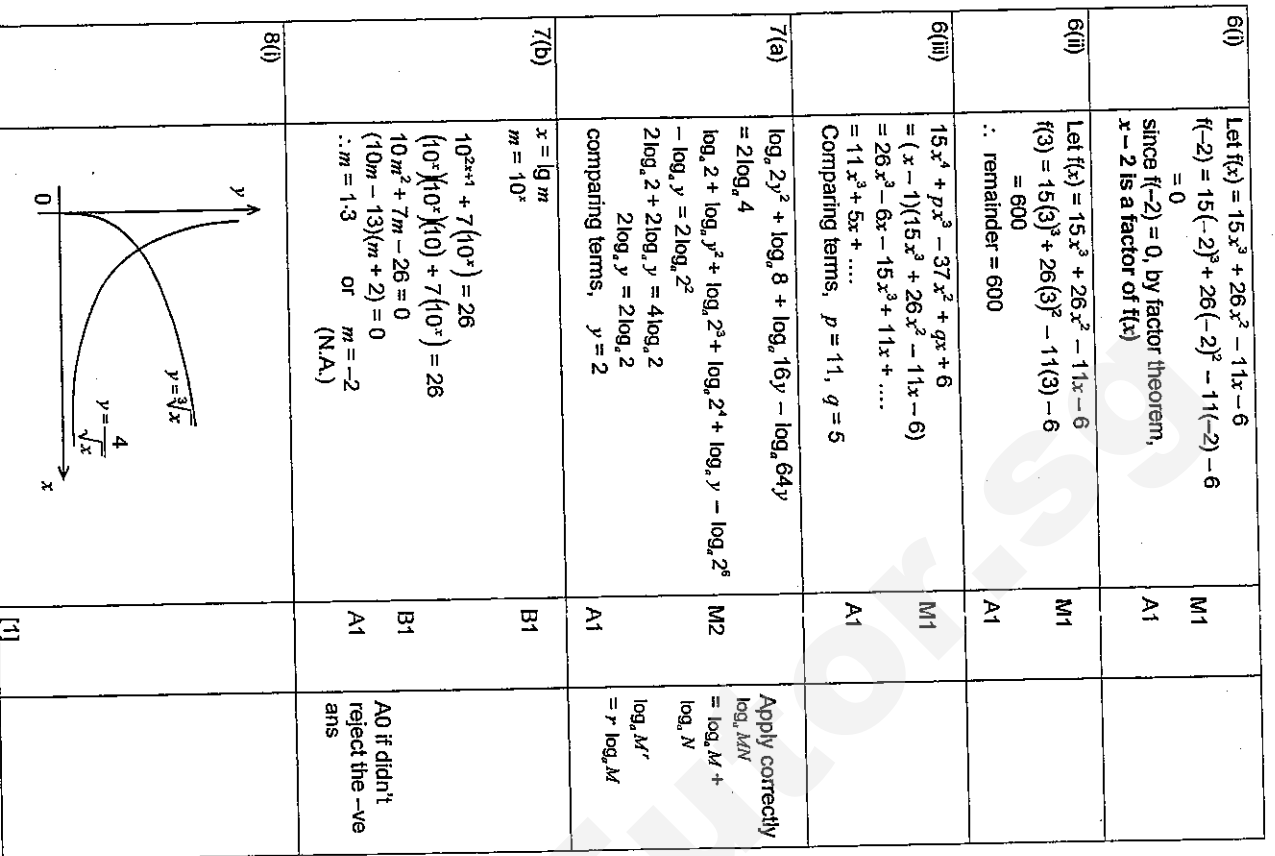 6(i)
Let f(x) = 15x³ + 26x² – 11x – 6
f(–2) = 15(–2)³ + 26(–2)² – 11(–2) – 6
= 0
since f(–2) = 0, by factor theorem,
x – 2 is a factor of f(x)
M1
A1
6(ii)
Let f(x) = 15x³ + 26x² – 11x – 6
f(3) = 15(3)³ + 26(3)² – 11(3) – 6
= 600
∴ remainder = 600
M1
A1
6(iii)
15x⁴ + px³ – 37x² + qx + 6
= (x – 1)(15x³ + 26x² – 11x – 6)
= 26x³ – 6x – 15x³ + 11x + ....
= 11x³ + 5x + ....
Comparing terms, p = 11, q = 5
M1
A1
7(a)
logₐ 2y² + logₐ 8 + logₐ 16y – logₐ 64y
= 2logₐ 4
logₐ 2 + logₐ y² + logₐ 2³ + logₐ 2⁴ + logₐ y – logₐ 2⁶
– logₐ y = 2logₐ 2²
2logₐ 2 + 2logₐ y = 4logₐ 2
2logₐ y = 2logₐ 2
comparing terms, y = 2
M2
A1
Apply correctly
logₐ MN
= logₐ M +
logₐ N
logₐ Mʳ
= r logₐ M
7.(b)
x = lg m
m = 10ˣ
10²ˣ⁺¹ + 7(10ˣ) = 26
(10ˣ)(10ˣ)(10) + 7(10ˣ) = 26
10m² + 7m – 26 = 0
(10m – 13)(m + 2) = 0
∴ m = 1.3 or m = –2
(N.A.)
B1
B1
A1
A0 if didn't
reject the –ve
ans
8(i)
y
y = ∛x
y = 4/√x
0
x
[1]
utor.sg